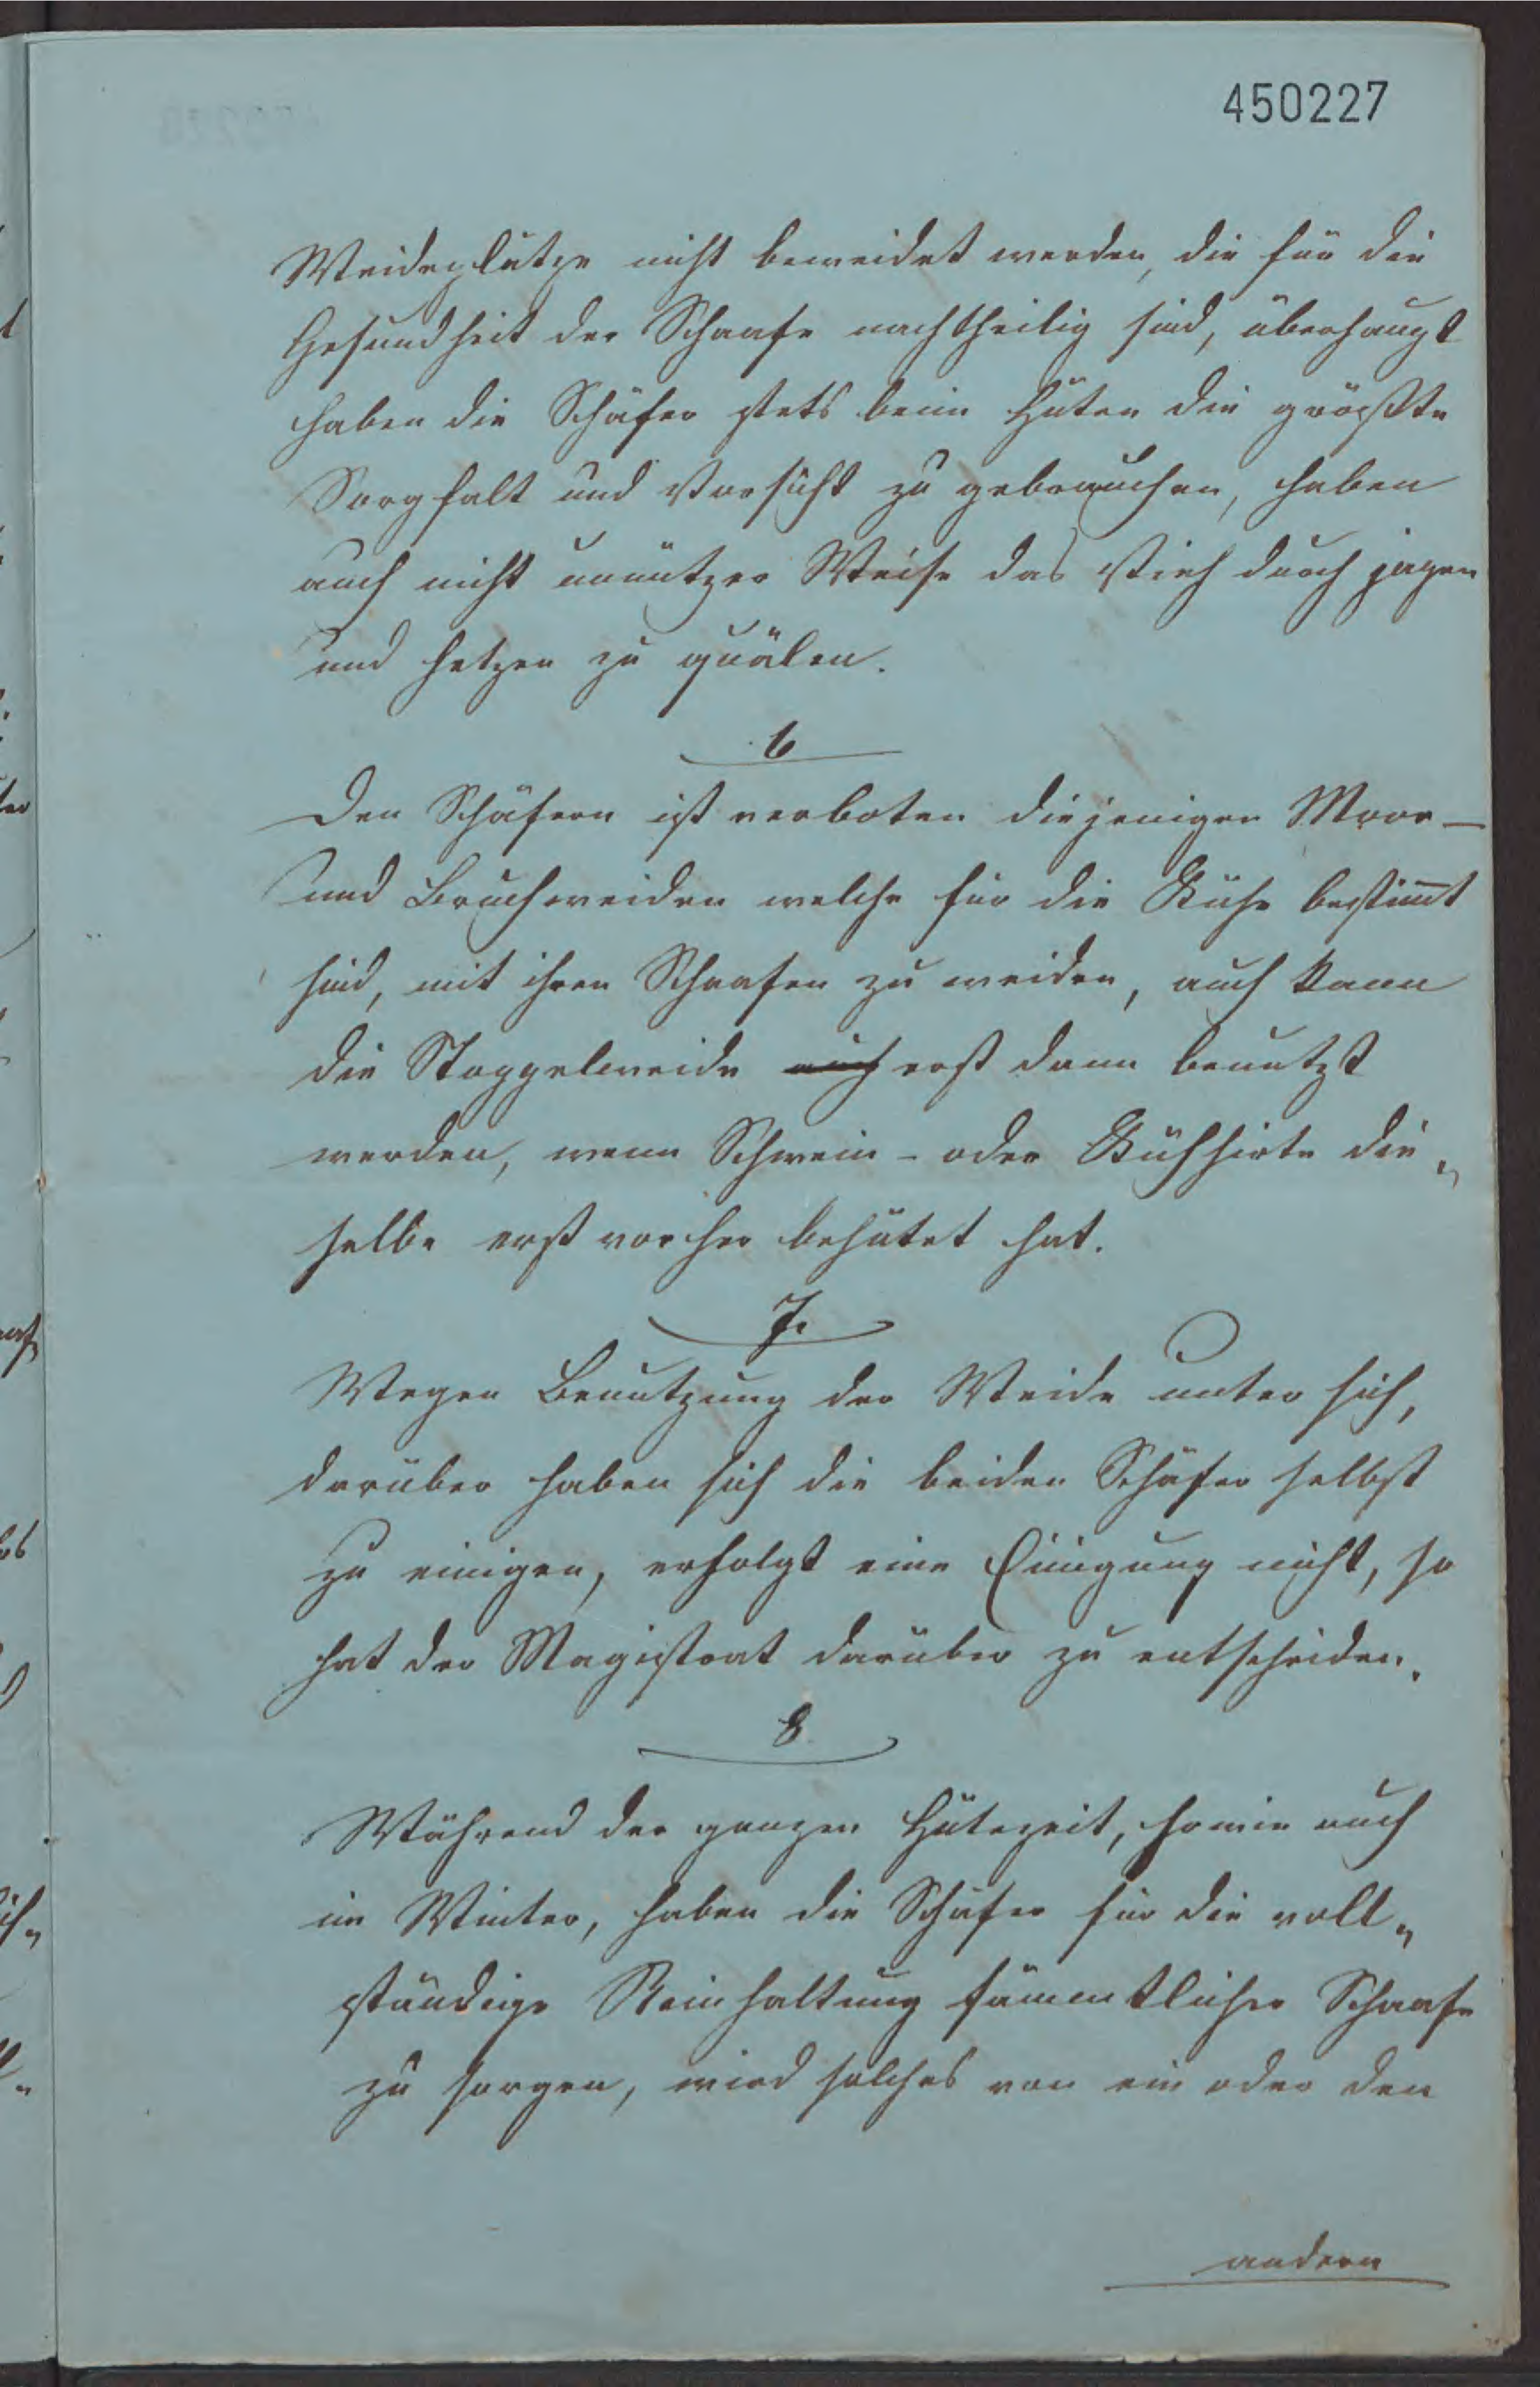 450227
Weideplätze nicht beweidet werden, die für die
Gesundheit der Schaafe nachtheilig sind, überhaupt
haben die Schäfer stets beim Hüten die größte
Sorgfalt und Vorsicht zu gebrauchen, haben
auch nicht unnützer Weise das Vieh durch jagen
und hetzen zu quälen.
6
Den Schäfern ist verboten diejenigen Moor-
und Bruchweiden welche für die Kühe bestimt
sind, mit ihren Schaafen zu weiden, auch kann
die Stoppelweide auch erst dann benutzt
werden, wenn Schwein- oder Kuhhirte die„
selbe erst vorher behütet hat.
7.
Wegen Benutzung der Weide unter sich,
darüber haben sich die beiden Schäfer selbst
zu einigen, erfolgt eine Einigung nicht, so
hat der Magistrat darüber zu entscheiden.
8
Während der ganzen Hütezeit, sowie auch
im Winter, haben die Schäfer für die voll„
ständige Reinhaltung sämmtlicher Schaafe
zu sorgen, wird solches von ein oder den
andern